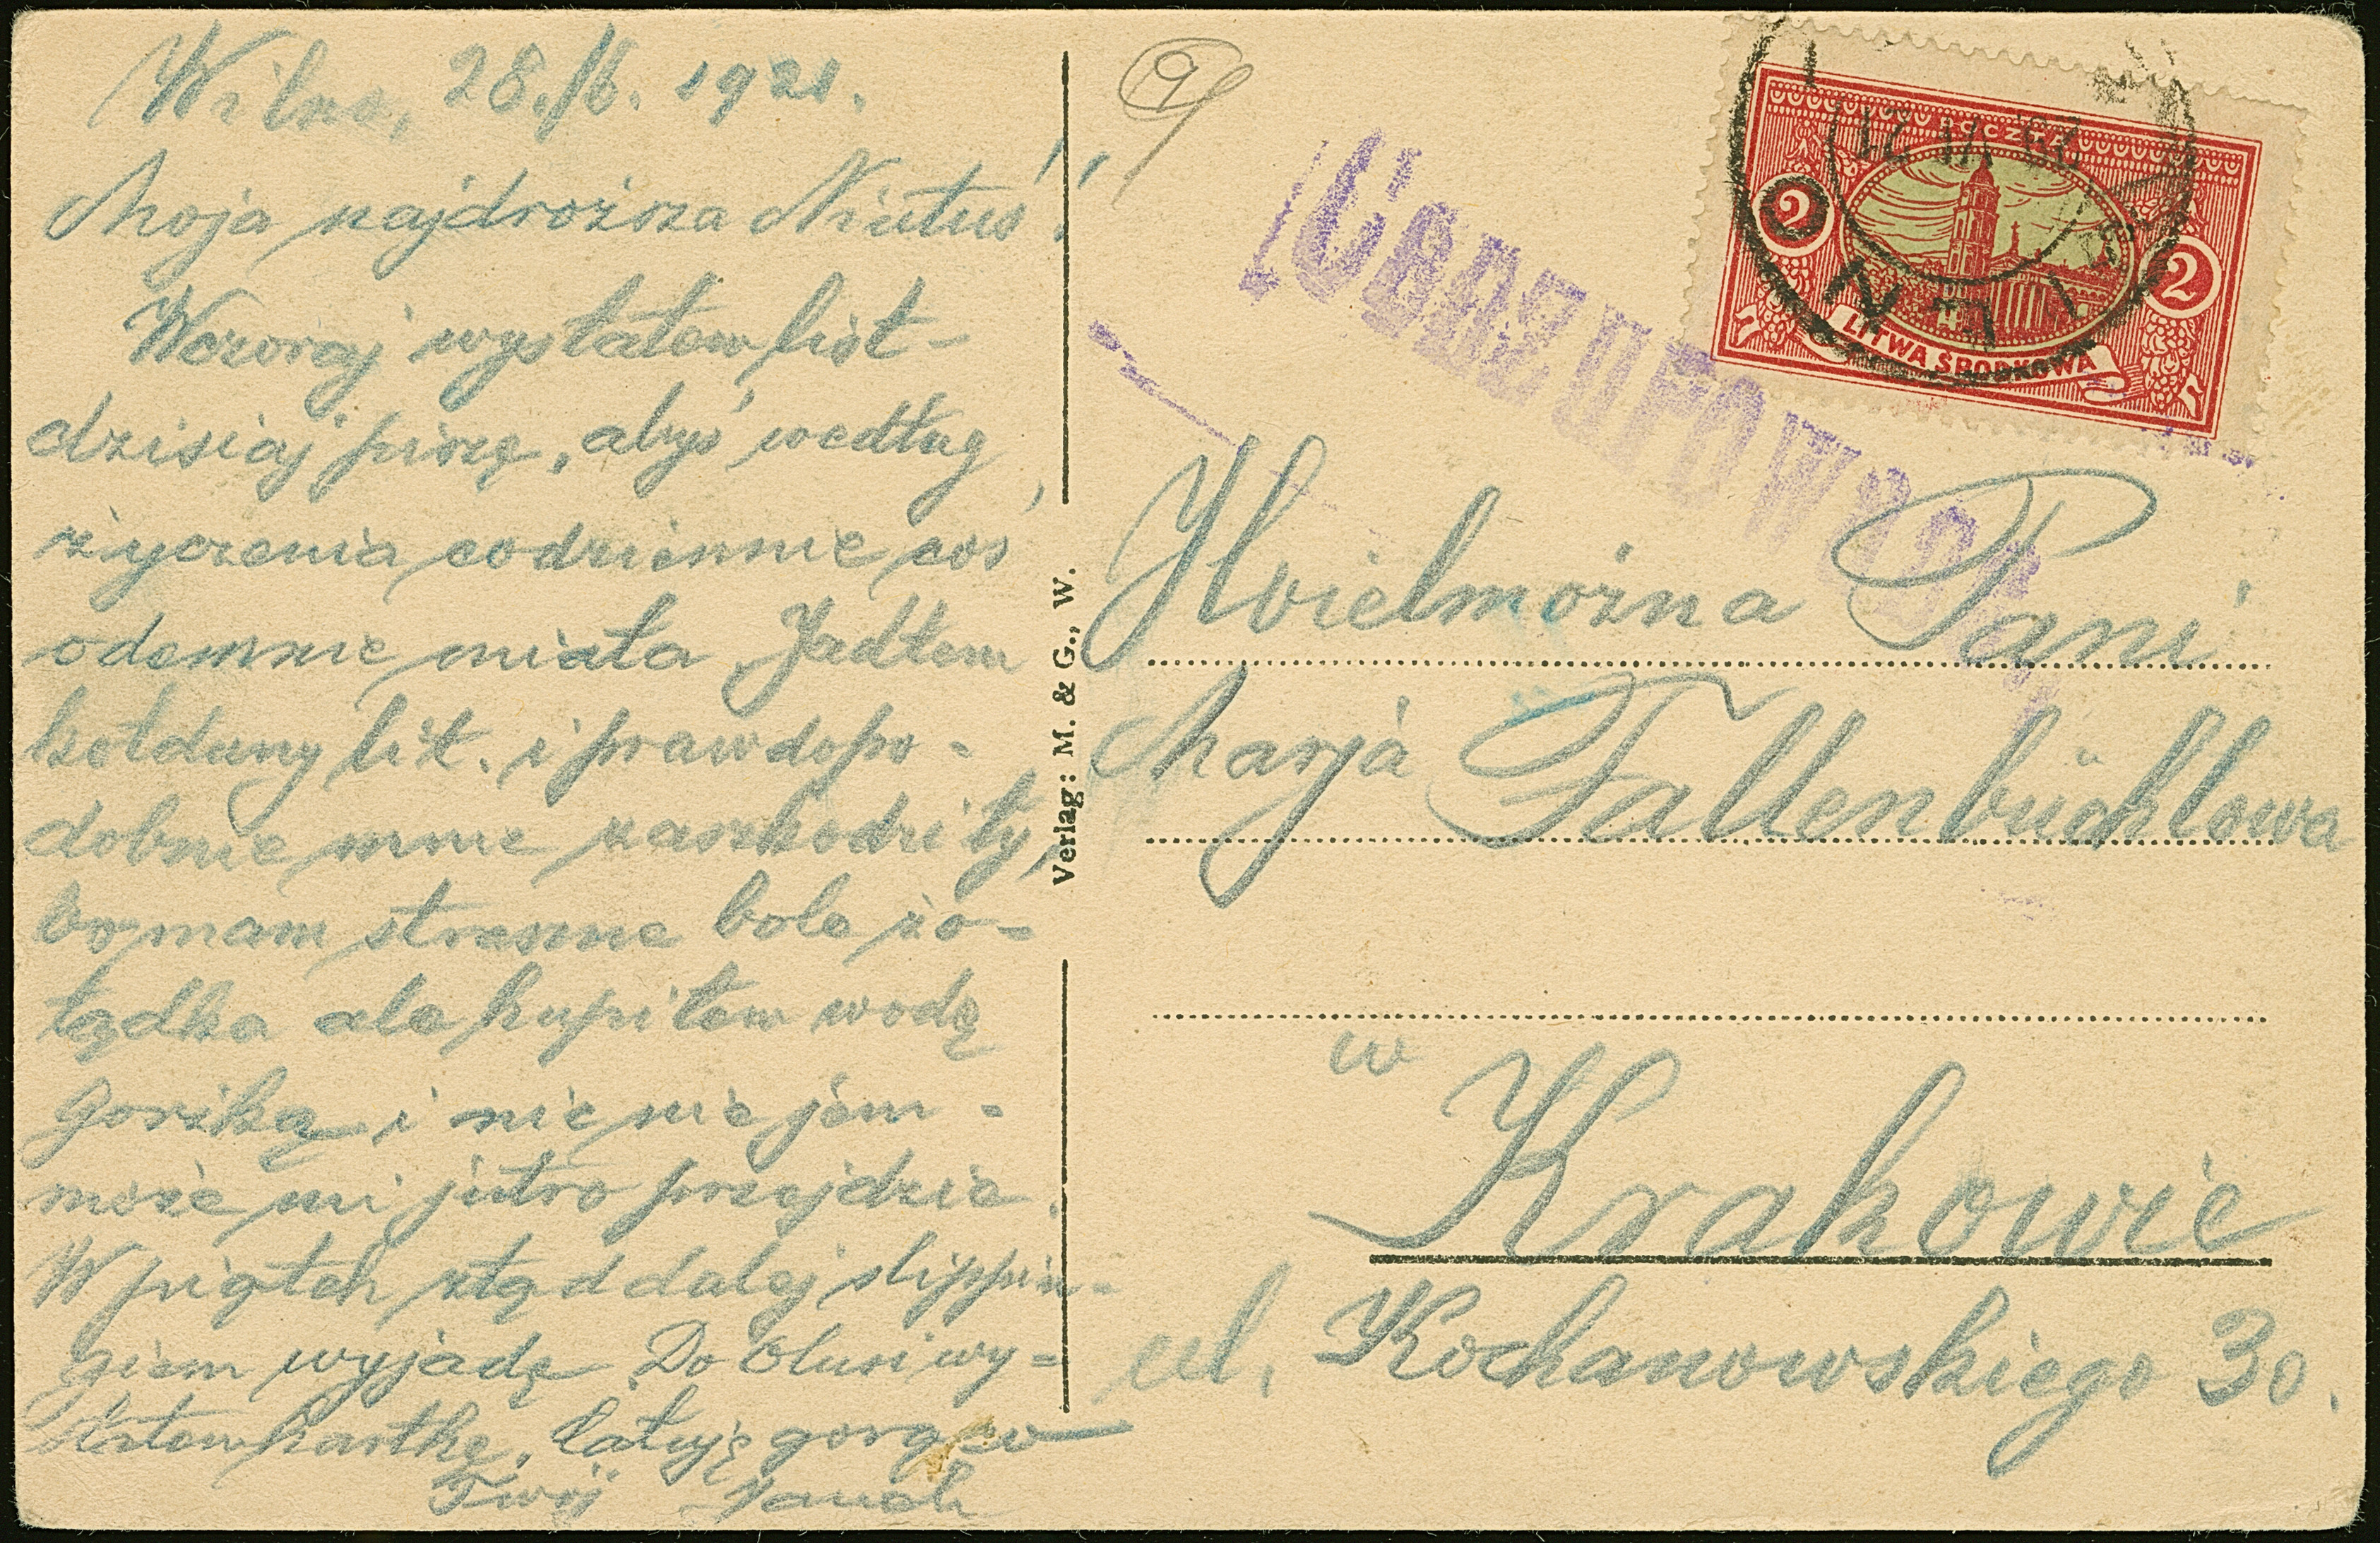 Wilno, 28./6. 1921.
Moja najdroższa Niutuś!
Wczoraj wysłałem list –
dzisiaj piszę, abyś według
życzenia codziennie coś
odemnie miała. Jadłem
kołduny lit. i prawdopo-
dobnie mnie zaszkodziły,
bo mam straszne bole żo-
łądka ale kupiłem wodę
gorzką i nic nie jem –
może mi jutro przejdzie.
W piątek ztąd dalej slippin-
giem wyjadę. Do Olusi wy-
słałem kartkę. Całuję gorąco
Twój Janek
Verlag: M. & G., W.
9
Ocenzurowana
POCZTA
2 2
LITWA ŚRODKOWA
WILNO
VI 21
JWielmożna Pani
Marja Fallenbüchlowa
w
Krakowie
ul. Kochanowskiego 30.